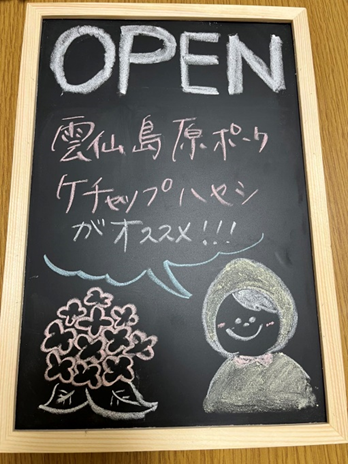 OPEN
雲仙島原ポーク
ケチャップハヤシ
がオススメ!!!